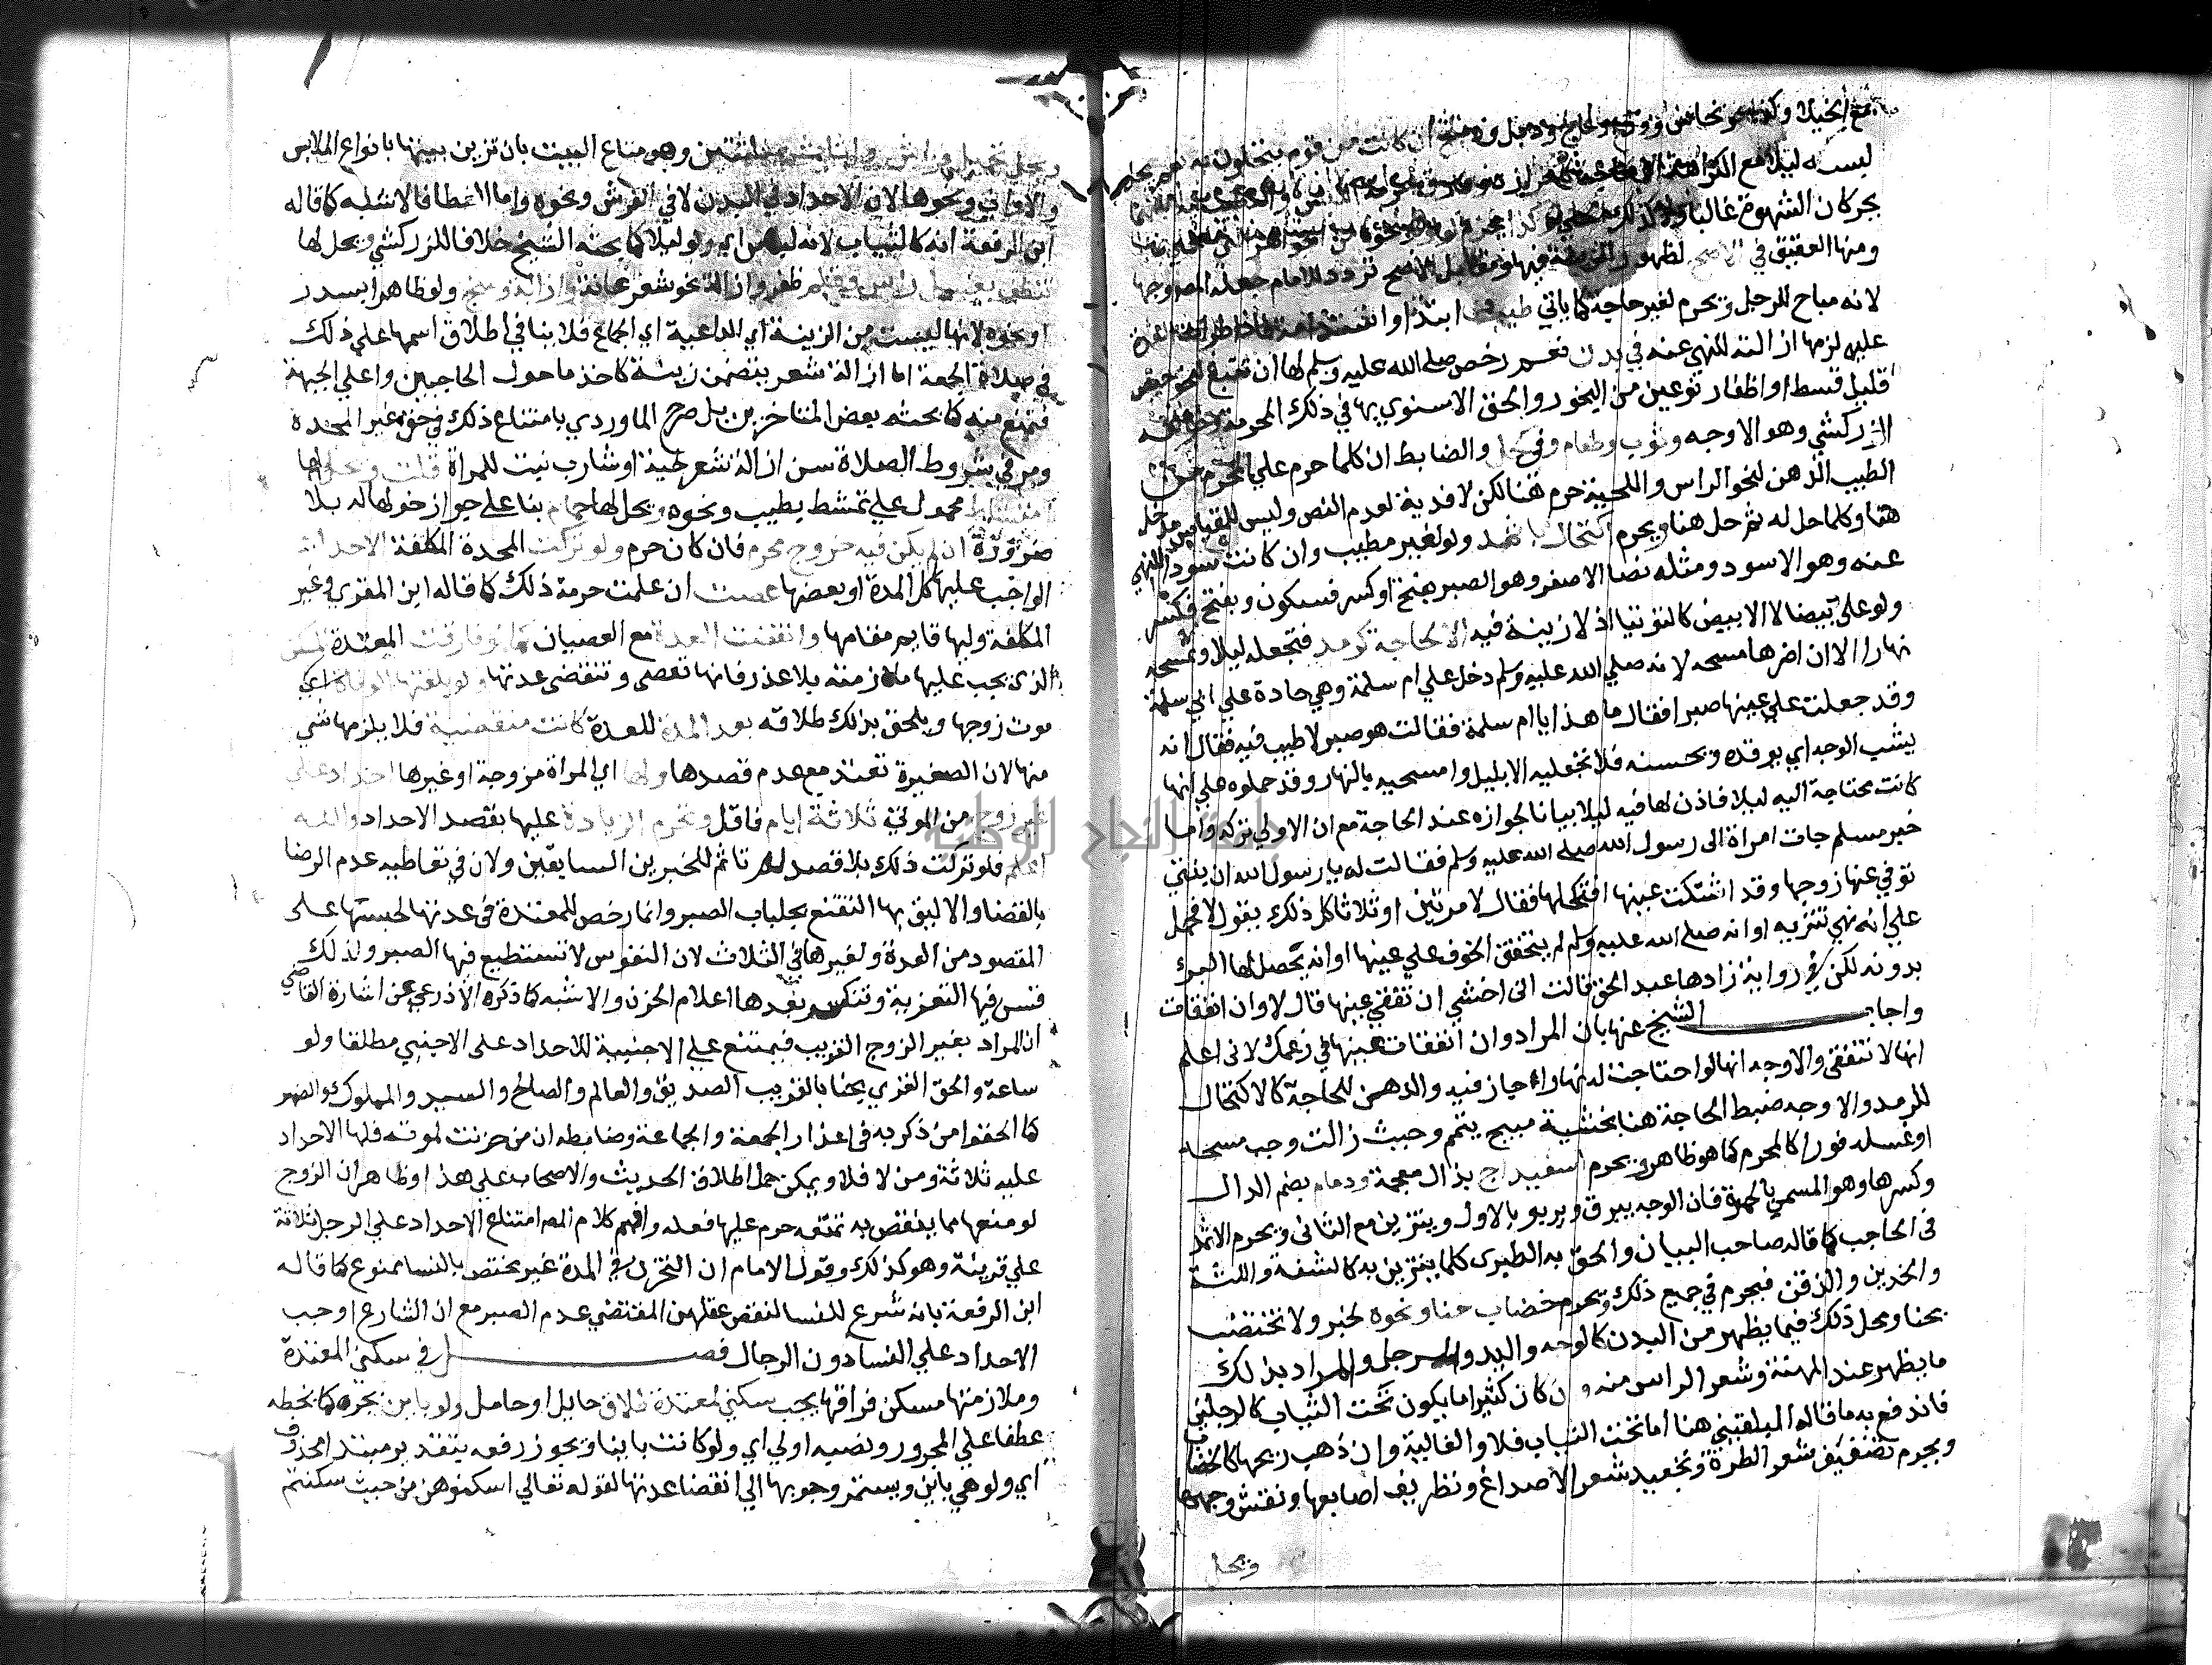 لبسه ليلا مع الكراهة
يحركان الشهوة غالبا
ومنها العقيق في الاصح لظهور الزينة فيها ومقابل الاصح تردد للامام جعله المص وجها
لانه مباح للرجل ويحرم لغير حاجة كما ياتي طيب في ابتدا واستدامة فاذا طرات العدة
عليه لزمها ازالته للنهي عنه في بدن نعم رخص صلى الله عليه وسلم لها ان تتبع لنحو حيض
قليل قسط او اظفار نوعين من البخور والحق الاسنوي بها في ذلك المحرمة وخالفه
الزركشي وهو الاوجه وثوب وطعام وفي كحل والضابط ان كلما حرم علي المحرم من
الطيب الدهن لنحو الراس واللحية حرم هنا لكن لا فدية لعدم النص وليس للقياس مدخل
هنا وكلما حل له ثم حل هنا ويحرم اكتحال باثمد ولو لغير مطيب وان كانت سودا للنهي
عنه وهو الاسود ومثله نصا الاصفر وهو الصبر بفتح او كسر فسكون وبفتح فكسر
ولو علي بيضا لا الابيض كالتوتيا اذ لا زينة فيه الا لحاجة كرمد فتجعله ليلا وتمسحه
نهارا الا ان اضرها مسحه لانه صلي الله عليه وسلم دخل علي ام سلمة وهي حادة علي ابي سلمة
وقد جعلت علي عينها صبرا فقال ما هذا يا ام سلمة فقالت هو صبر لا طيب فيه فقال انه
يشب الوجه اي يوقده ويحسنه فلا تجعليه الا بليل وامسحيه بالنهار وقد حملوه علي انها
كانت محتاجة اليه ليلا فاذن لها فيه ليلا بيانا لجوازه عند الحاجة مع ان الاولي تركه واما
خبر مسلم جات امراة الى رسول الله صلى الله عليه وسلم فقالت له يا رسول الله ان بنتي
توفي عنها زوجها وقد اشتكت عينها افنكحلها فقال لا مرتين او ثلاثا كل ذلك يقول لا فحمل
علي انه نهي تنزيه او انه صلى الله عليه وسلم لم يتحقق الخوف علي عينها او انه يحصل لها البرء
بدونه لكن في رواية زادها عبد الحق قالت اني اخشي ان تنفقي عينها قال لا وان انفقات
واجاب الشيخ عنها بان المراد وان انفقات عينها في زعمك لاني اعلم
انها لا تنفقي والاوجه انها لو احتاجت له نهارا جاز فيه والدهن للحاجة كالاكتحال
للرمد والاوجه ضبط الحاجة هنا بخشية مبيح يتمم وحيث زالت وجب مسحه
او غسله فورا كالمحرم كما هو ظاهر ويحرم اسفيداج بذال معجمة ودمام بضم الدال
وكسرها وهو المسمي بالحمرة فان الوجه يبرق ويربو بالاول ويتزين مع الثاني ويحرم الاثمد
في الحاجب كما قاله صاحب البيان والحق به الطبري كلما يتزين به كالشفة واللثة
والخدين والذقن فيحرم في جميع ذلك ويحرم خضاب حنا ونحوه لخبر ولا تختضب
بحنا ومحل ذلك فيما يظهر من البدن كالوجه واليد والرجل والمراد بذلك
ما يظهر عند المهنة وشعر الراس منه وان كان كثيرا ما يكون تحت الثياب كالرجلين
فاندفع به ما قاله البلقيني هنا اما تحت الثياب فلا والغالية وان ذهب ريحها كالخضاب
ويحرم تصفيف شعر الطرة وتجعيد شعر الاصداغ وتطريف اصابعها ونقش وجهها
ويحل
ويحل تجميل فراش واثاث بمثلثتين وهو متاع البيت بان تزين بيتها بانواع الملابس
والاواني ونحوها لان الاحداد في البدن لا في الفرش ونحوه واما الغطا فالاشبه كما قاله
ابن الرفعة انه كالثياب لانه لباس اي ولو ليلا كما بحثه الشيخ خلافا للزركشي ويحل لها
تنظف بغسل راس وقلم ظفر وازالة نحو شعر عانة وازالة وسخ ولو ظاهرا بسدر
او نحوه لانها ليست من الزينة اي الداعية اي الجماع فلا ينافي اطلاق اسمها علي ذلك
في صلاة الجمعة اما ازالة شعر يتضمن زينة كاخذ ما حول الحاجبين واعلي الجبهة
فتمنع منه كما بحثه بعض المتاخرين بل صرح الماوردي بامتناع ذلك في حق غير المحدة
ومر في شروط الصلاة سن ازالة شعر لحية او شارب نبت للمراة قلت ويحل لها
امتشاط محمول علي تمشط بطيب ونحوه ويحل لها حمام بنا علي جواز دخولها له بلا
ضرورة ان لم يكن فيه خروج محرم فان كان حرم ولو تركت المحدة المكلفة الاحداد
الواجب عليها كل المدة او بعضها عصت ان علمت حرمة ذلك كما قاله ابن المقري وغير
المكلفة وليها قايم مقامها وانقضت العدة مع العصيان كما لو فارقت المعتدة المسكن
الذي يجب عليها ملازمته بلا عذر فانها تعصي وتنقضي عدتها ولو بلغتها الوفاة اي
موت زوجها ويلحق بذلك طلاقه بعد المدة للعدة كانت منقضية فلا يلزمها شي
منها لان الصغيرة تعتد مع عدم قصدها ولها اي المراة مزوجة او غيرها احداد علي
غير زوج من الموتي ثلاثة ايام فاقل وتحرم الزيادة عليها بقصد الاحداد والله
اعلم فلو تركت ذلك بلا قصد لم تاثم للخبرين السابقين ولان في تعاطيه عدم الرضا
بالقضا والاليق بها التقنع بجلباب الصبر وانما رخص للمعتدة في عدتها لحبسها علي
المقصود من العدة ولغيرها في الثلاث لان النفوس لا تستطيع فيها الصبر ولذلك
تسن فيها التعزية وتنكسر بعدها اعلام الحزن والاشبه كما ذكره الاذرعي عن اشارة القاضي
ان المراد بغير الزوج القريب فيمتنع علي الاجنبية الاحداد علي الاجنبي مطلقا ولو
ساعة والحق الغزي بحثا بالقريب الصديق والعالم والصالح والسيد والمملوك والصهر
كما الحقوا من ذكر به في اعذار الجمعة والجماعة وضابطه ان من حزنت لموته فلها الاحداد
عليه ثلاثة ومن لا فلا ويمكن حمل اطلاق الحديث والاصحاب علي هذا وظاهر ان الزوج
لو منعها مما ينقص به تمتعه حرم عليها فعله وافهم كلام المص امتناع الاحداد علي الرجل ثلاثة
علي قريبه وهو كذلك وقول الامام ان التحزن في المدة غير مختص بالنسا ممنوع كما قاله
ابن الرفعة بانه شرع للنسا لنقص عقلهن المقتضي عدم الصبر مع ان الشارع اوجب
الاحداد علي النسا دون الرجال فصل في سكني المعتدة
وملازمتها مسكن فراقها يجب سكني لمعتدة طلاق حايل او حامل ولو باين بجره كما بخطه
عطفا علي المجرور ونصبه اولي اي ولو كانت باينا ويجوز رفعه بتقدير مبتدا محذوف
اي ولو هي باين ويستمر وجوبها الي انقضا عدتها لقوله تعالي اسكنوهن من حيث سكنتم
جامعة النجاح الوطنية